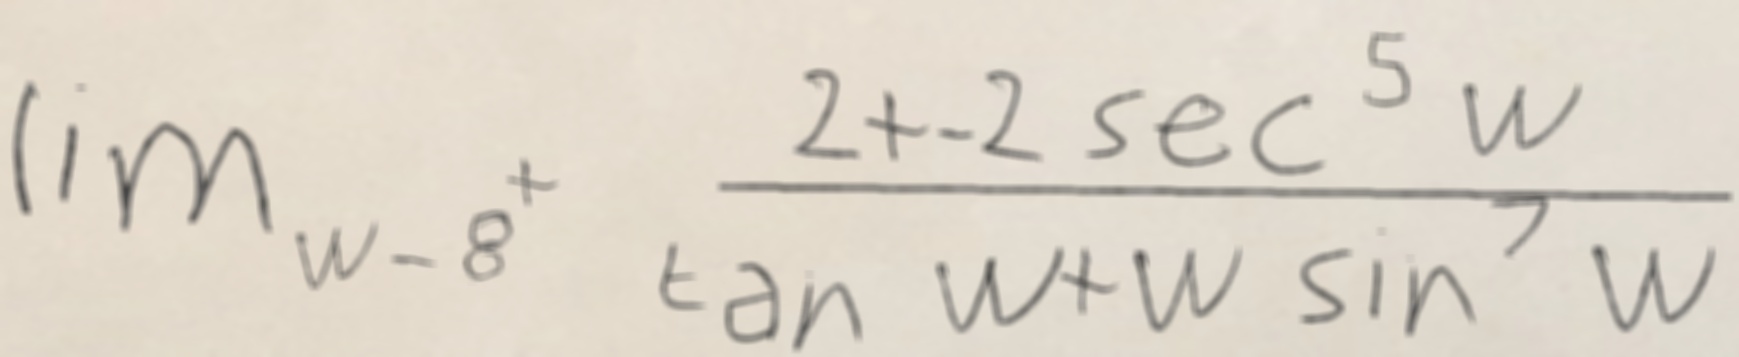 \lim_{w-8^+} \frac{2+-2 \sec^5 w}{\tan w+w \sin^7 w}